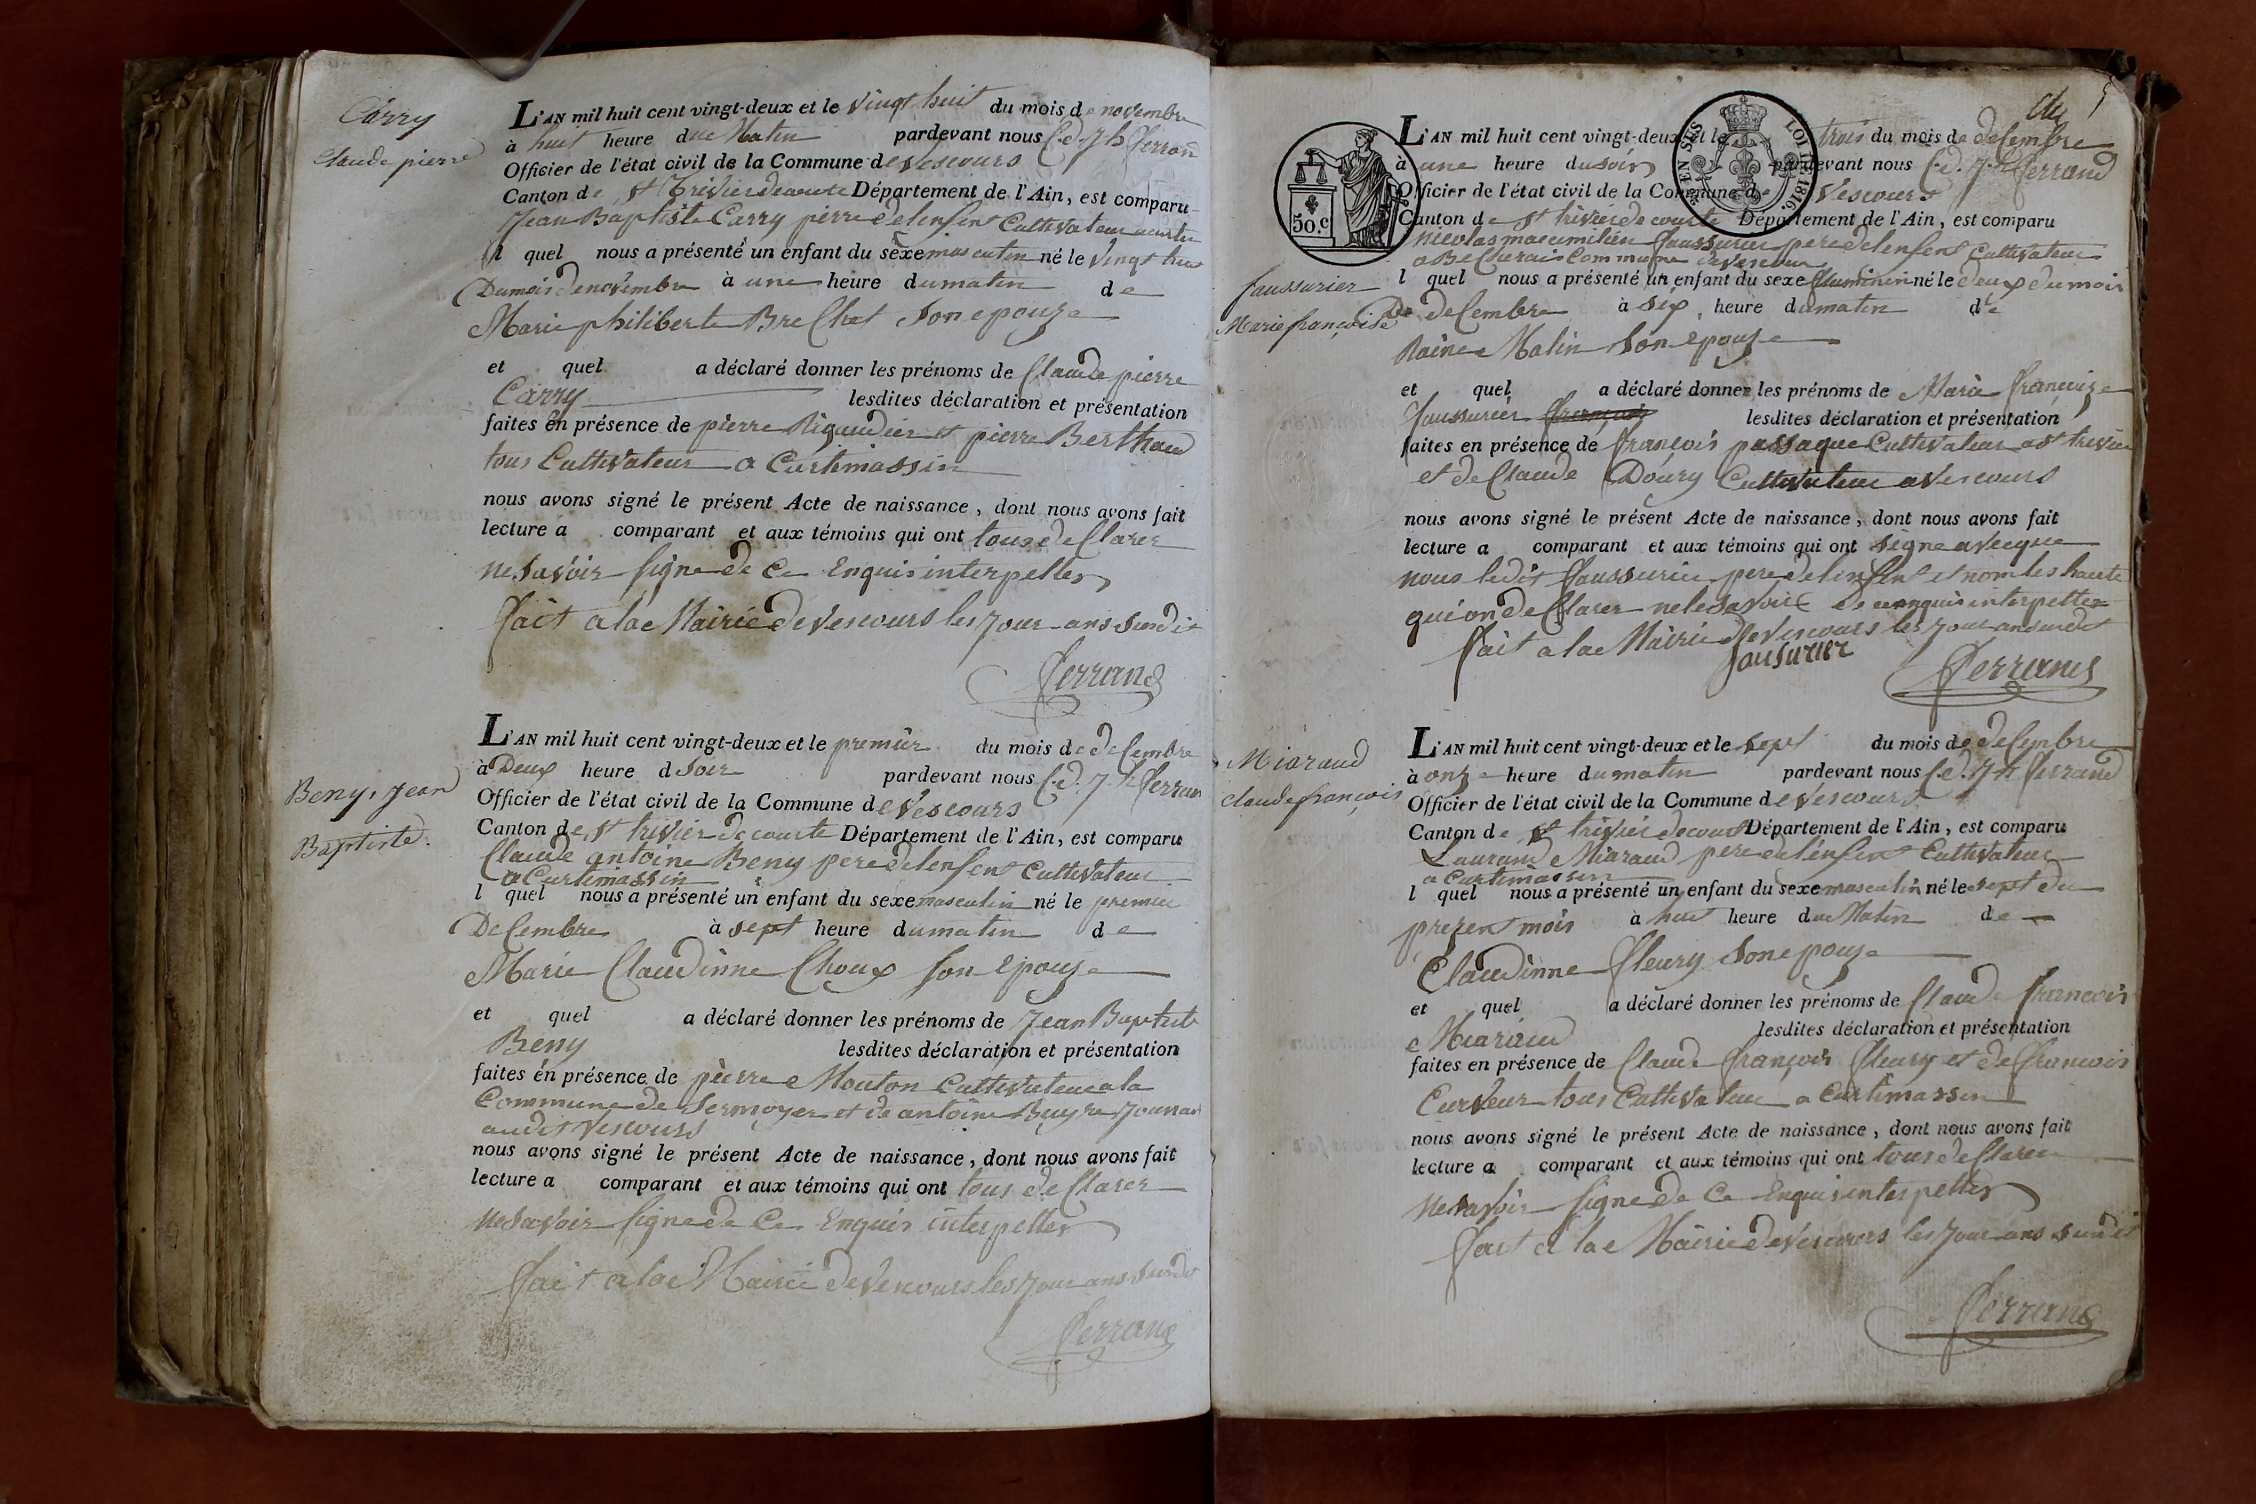 Carry
Claude pierre
L'AN mil huit cent vingt-deux et le vingt huit du mois de novembre
à huit heure due Matin pardevant nous C.d. J.h ferrand
Officier de l'état civil de la Commune de Vescours
Canton de St Trivier de courte Département de l'Ain, est comparu
Jean Baptiste Carry pierre delenfent Cultivateur
l quel nous a présenté un enfant du sexe masculin né le vingt huit
Dumois denovembre à une heure dumatin de
Marie philiberte BreChet Son epouze
et quel a déclaré donner les prénoms de Claude pierre
Carry lesdites déclaration et présentation
faites en présence de pierre Rigaudier et pierre Berthaud
tous Cultivateur a Curtimassin
nous avons signé le présent Acte de naissance, dont nous avons fait
lecture a comparant et aux témoins qui ont tous deClarer
ne Savoir Signe de Ce Enquis interpeller
fait a lae Mairie de Vescours les jour ans Susdit
ferrand
Beny, Jean
Baptiste.
L'AN mil huit cent vingt-deux et le premier du mois de deCembre
à Deux heure d Soir pardevant nous C.d. J.h ferrand
Officier de l'état civil de la Commune de Vescours
Canton de St trivier de courte Département de l'Ain, est comparu
Claude antoine Beny pere delenfent Cultivateur
a Curtimassin
l quel nous a présenté un enfant du sexe masculin né le premier
DeCembre à sept heure dumatin de
Marie Claudinne Choux son epouze
et quel a déclaré donner les prénoms de Jean Baptiste
Beny lesdites déclaration et présentation
faites en présence de pierre Mouton Cultivateur a la
Commune de Sermoyer et de antoine
audit Vescours
nous avons signé le présent Acte de naissance, dont nous avons fait
lecture a comparant et aux témoins qui ont tous deClarer
ne Savoir Signe de Ce Enquis interpeller
fait a lae Mairie de Vescours les jour ans Susdit
ferrand
EN SUS
LOI DE 1816.
50.c
L'AN mil huit cent vingt-deux et le trois du mois de deCembre
à une heure du soir pardevant nous C.d. J.h ferrand
Officier de l'état civil de la Commune de Vescours
Canton de St trivier de courte Département de l'Ain, est comparu
nicolas maximilien faussurier pere delenfent Cultivateur
a Commune de Vescour
faussurier
Marie françoise
l quel nous a présenté un enfant du sexe né le deux du mois
De deCembre à six heure dumatin de
Raine Matin Son epouze
et quel a déclaré donner les prénoms de Marie françoize
faussurier lesdites déclaration et présentation
faites en présence de françois passaque Cultivateur a St trivier
et de Claude Doury Cultivateur a Vescours
nous avons signé le présent Acte de naissance, dont nous avons fait
lecture a comparant et aux témoins qui ont signe avecque
nous ledit faussurier pere delenfent et nom les haute
qui on deClarer ne le Savoir de ce enquis interpeller
fait a lae Mairie de Vescours les jour ans susdit
fausurier
ferrand
Miaraud
Claude françois
L'AN mil huit cent vingt-deux et le sept du mois de deCembre
à onze heure dumatin pardevant nous C.d. J.h ferrand
Officier de l'état civil de la Commune de Vescours
Canton de St trivier de court Département de l'Ain, est comparu
Laurand Miaraud pere delenfent Cultivateur
a Curtimassin
l quel nous a présenté un enfant du sexe masculin né le sept du
prezent mois à huit heure due Matin de
Claudinne fleury Son epouze
et quel a déclaré donner les prénoms de Claude francois
Miaraud lesdites déclaration et présentation
faites en présence de Claude françois fleury et de francois
Curveur tous Cultivateur a Curtimassin
nous avons signé le présent Acte de naissance, dont nous avons fait
lecture a comparant et aux témoins qui ont tous deClarer
ne Savoir Signe de Ce Enquis interpeller
fait a lae Mairie de Vescours les jour ans susdit
ferrand